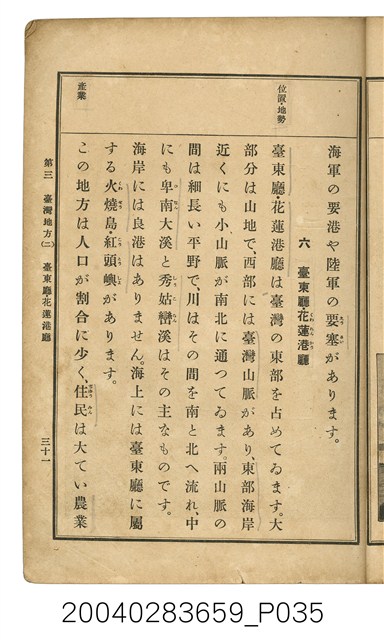 海軍の要港や陸軍の要塞があります。
六 臺東廳・花蓮港廳
位置・地勢
臺東廳・花蓮港廳は臺灣の東部を占めてゐます。大
部分は山地で、西部には臺灣山脈があり、東部海岸
近くにも小山脈が南北に通つてゐます。兩山脈の
間は細長い平野で、川はその間を南と北へ流れ、中
にも卑南大溪と秀姑巒溪はその主なものです。
海岸には良港はありません。海上には臺東廳に屬
する火燒島・紅頭嶼があります。
產業
この地方は人口が割合に少く、住民は大てい農業
第三 臺灣地方(二) 臺東廳・花蓮港廳
三十一
20040283659_P035